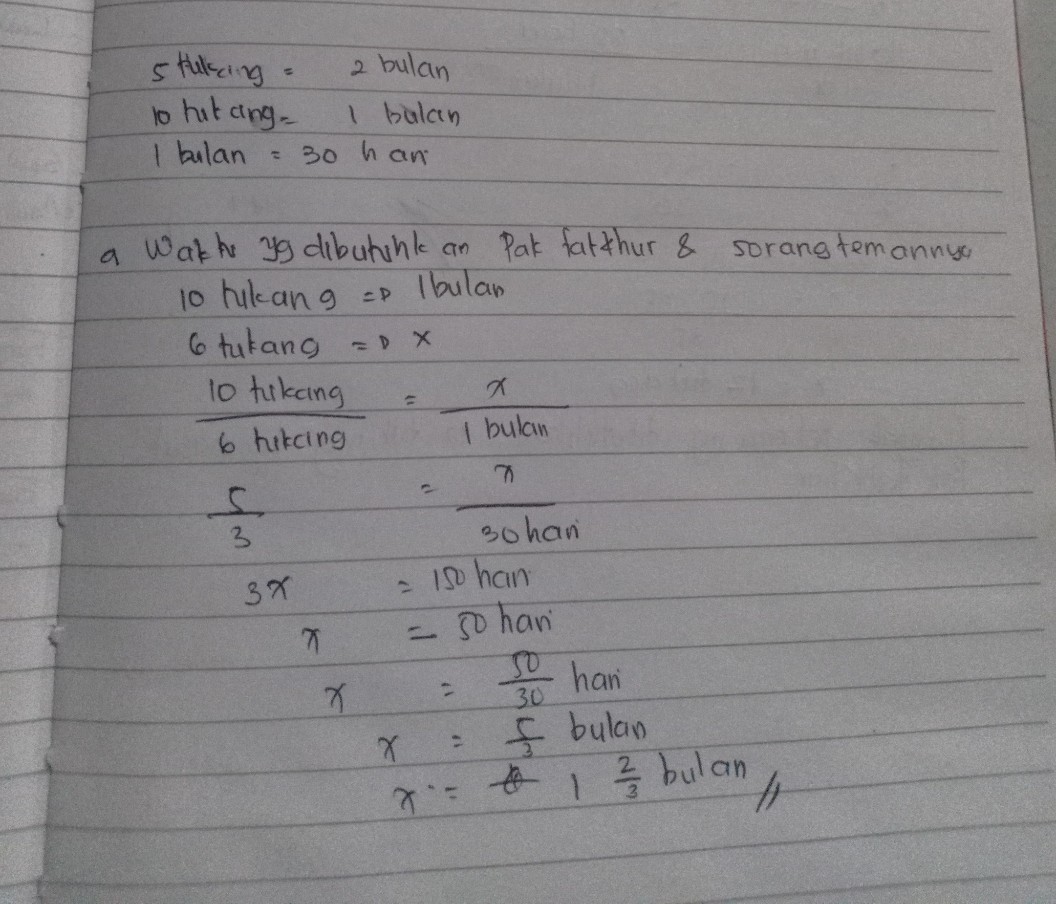 5 tukang = 2 bulan
10 tukang = 1 bulan
1 bulan = 30 hari
a Waktu yg dibutuhkan Pak fatkhur & sorang temannya
10 tukang => 1 bulan
6 tukang => x
10 tukang / 6 tukang = x / 1 bulan
5/3 = x / 30 hari
3x = 150 hari
x = 50 hari
x = 50/30 hari
x = 5/3 bulan
x = 1 2/3 bulan //